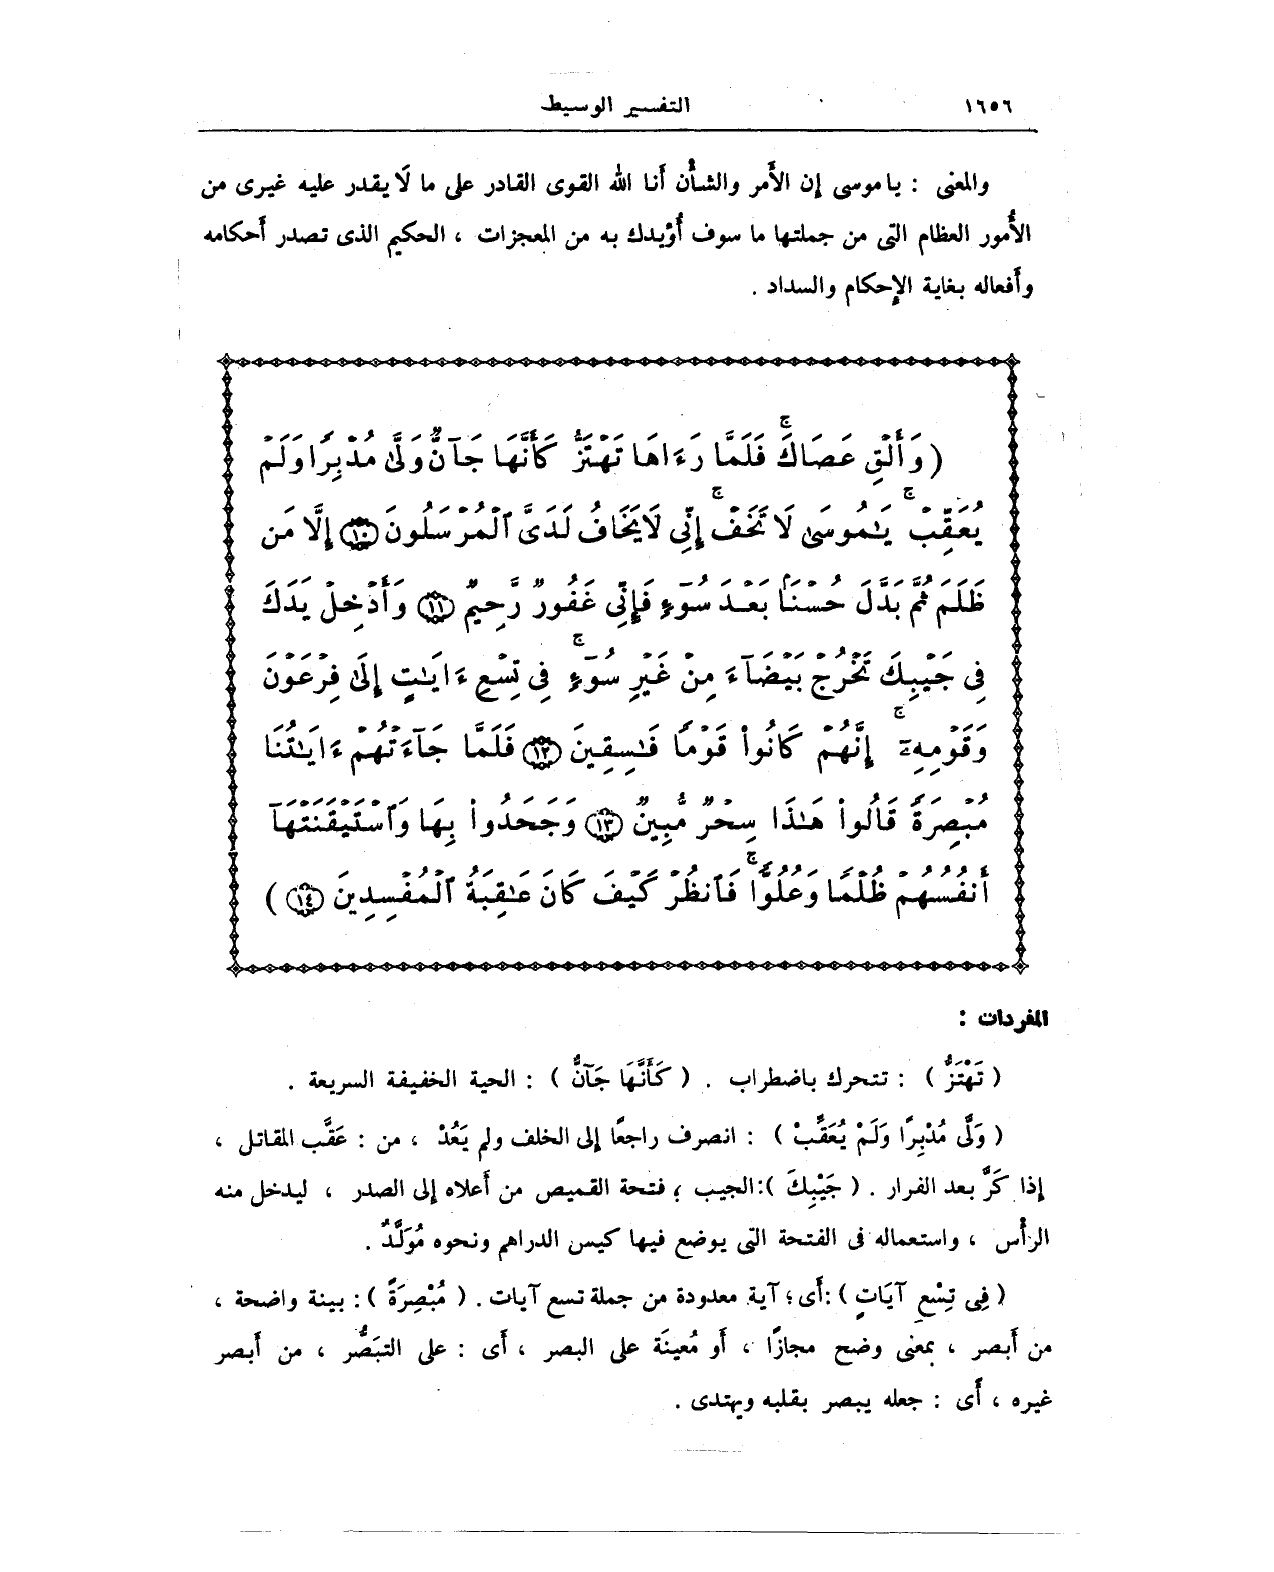 ١٦٥٦
التفسير الوسيط
والمعنى : ياموسى إن الأَمر والشأْن أَنا الله القوى القادر على ما لَا يقدر عليه غيرى من
الأُمور العظام التى من جملتها ما سوف أُؤيدك به من المعجزات ، الحكيم الذى تصدر أَحكامه
وأَفعاله بغاية الإِحكام والسداد .
( وَأَلْقِ عَصَاكَ ۚ فَلَمَّا رَءَاهَا تَهْتَزُّ كَأَنَّهَا جَآنٌّ وَلَّىٰ مُدْبِرًا وَلَمْ
يُعَقِّبْ ۚ يَـٰمُوسَىٰ لَا تَخَفْ ۚ إِنِّى لَا يَخَافُ لَدَىَّ ٱلْمُرْسَلُونَ ﴿١٠﴾ إِلَّا مَن
ظَلَمَ ثُمَّ بَدَّلَ حُسْنَۢا بَعْدَ سُوٓءٍ فَإِنِّى غَفُورٌ رَّحِيمٌ ﴿١١﴾ وَأَدْخِلْ يَدَكَ
فِى جَيْبِكَ تَخْرُجْ بَيْضَآءَ مِنْ غَيْرِ سُوٓءٍ ۚ فِى تِسْعِ ءَايَـٰتٍ إِلَىٰ فِرْعَوْنَ
وَقَوْمِهِۦٓ ۚ إِنَّهُمْ كَانُوا۟ قَوْمًا فَـٰسِقِينَ ﴿١٢﴾ فَلَمَّا جَآءَتْهُمْ ءَايَـٰتُنَا
مُبْصِرَةً قَالُوا۟ هَـٰذَا سِحْرٌ مُّبِينٌ ﴿١٣﴾ وَجَحَدُوا۟ بِهَا وَٱسْتَيْقَنَتْهَآ
أَنفُسُهُمْ ظُلْمًا وَعُلُوًّا ۚ فَٱنظُرْ كَيْفَ كَانَ عَـٰقِبَةُ ٱلْمُفْسِدِينَ ﴿١٤﴾ )
المفردات :
( تَهْتَزُّ ) : تتحرك باضطراب . ( كَأَنَّهَا جَآنٌّ ) : الحية الخفيفة السريعة .
( وَلَّى مُدْبِرًا وَلَمْ يُعَقِّبْ ) : انصرف راجعًا إلى الخلف ولم يَعُدْ ، من : عَقَّب المقاتل ،
إذا كَرَّ بعد الفرار . ( جَيْبِكَ ):الجيب ؛ فتحة القميص من أَعلاه إلى الصدر ، ليدخل منه
الرأْس ، واستعماله فى الفتحة التى يوضع فيها كيس الدراهم ونحوه مُوَلَّدٌ .
( فِى تِسْعِ آيَاتٍ ) :أَى؛ آية معدودة من جملة تسع آيات . ( مُبْصِرَةً ) : بينة واضحة ،
من أَبصر ، بمعنى وضح مجازًا ، أَو مُعينَة على البصر ، أَى : على التبَصُّر ، من أَبصر
غيره ، أَى : جعله يبصر بقلبه ويهتدى .